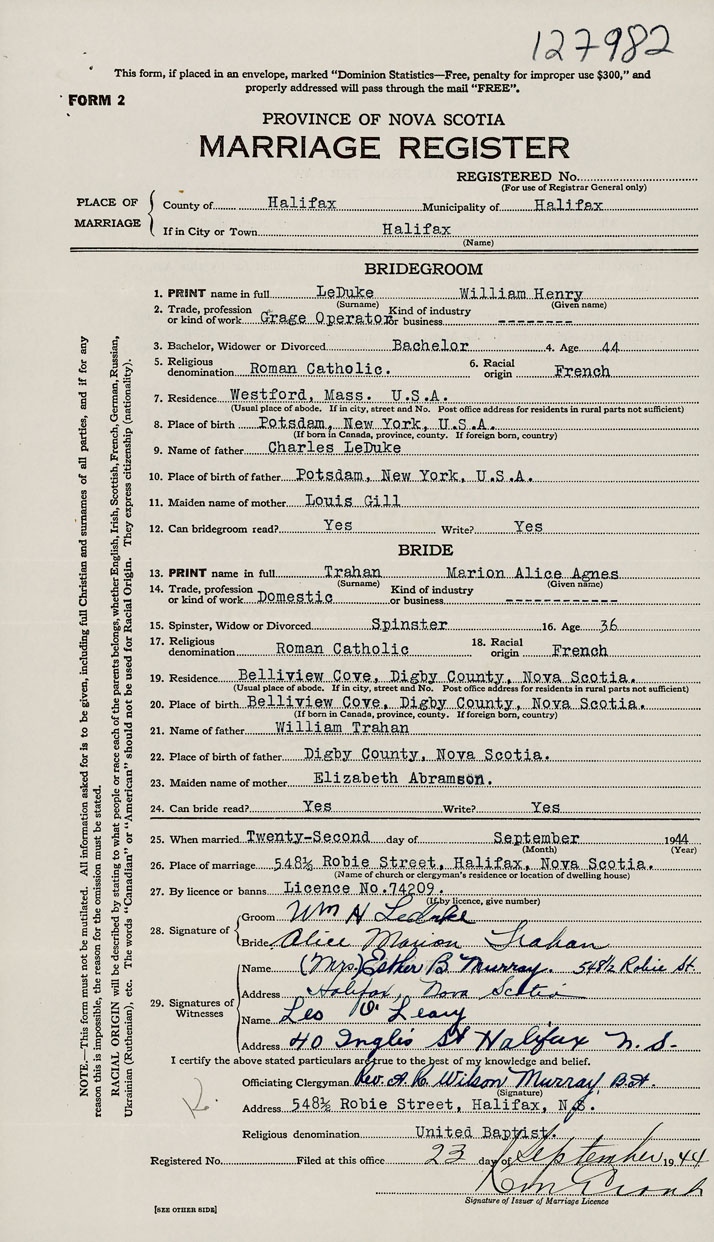 127982
This form, if placed in an envelope, marked "Dominion Statistics—Free, penalty for improper use $300," and
properly addressed will pass through the mail "FREE".
FORM 2
PROVINCE OF NOVA SCOTIA
MARRIAGE REGISTER
REGISTERED No.
(For use of Registrar General only)
PLACE OF MARRIAGE
County of Halifax Municipality of Halifax
If in City or Town Halifax
(Name)
BRIDEGROOM
1. PRINT name in full LeDuke William Henry
(Surname) (Given name)
2. Trade, profession or kind of work Grage Operator Kind of industry or business --------
3. Bachelor, Widower or Divorced Bachelor 4. Age 44
5. Religious denomination Roman Catholic. 6. Racial origin French
7. Residence Westford, Mass. U.S.A.
(Usual place of abode. If in city, street and No. Post office address for residents in rural parts not sufficient)
8. Place of birth Potsdam, New York, U.S.A.
(If born in Canada, province, county. If foreign born, country)
9. Name of father Charles LeDuke
10. Place of birth of father Potsdam, New York, U.S.A.
11. Maiden name of mother Louis Gill
12. Can bridegroom read? Yes Write? Yes
BRIDE
13. PRINT name in full Trahan Marion Alice Agnes
(Surname) (Given name)
14. Trade, profession or kind of work Domestic Kind of industry or business ------------
15. Spinster, Widow or Divorced Spinster 16. Age 36
17. Religious denomination Roman Catholic 18. Racial origin French
19. Residence Belliview Cove, Digby County, Nova Scotia.
(Usual place of abode. If in city, street and No. Post office address for residents in rural parts not sufficient)
20. Place of birth Belliview Cove, Digby County, Nova Scotia.
(If born in Canada, province, county. If foreign born, country)
21. Name of father William Trahan
22. Place of birth of father Digby County, Nova Scotia.
23. Maiden name of mother Elizabeth Abramson.
24. Can bride read? Yes Write? Yes
25. When married Twenty-Second day of September 1944
(Month) (Year)
26. Place of marriage 548½ Robie Street, Halifax, Nova Scotia.
(Name of church or clergyman's residence or location of dwelling house)
27. By licence or banns Licence No.74209.
(If by licence, give number)
28. Signature of
Groom Wm H Leduke
Bride Alice Marion Trahan
29. Signatures of Witnesses
Name (Mrs) Esther B. Murray. 548½ Robie St.
Address Halifax, Nova Scotia
Name Leo O'Leary
Address 40 Inglis St Halifax N.S.
I certify the above stated particulars are true to the best of my knowledge and belief.
Officiating Clergyman Rev. A. R. Wilson Murray, B.A.
(Signature)
Address 548½ Robie Street, Halifax, N.S.
Religious denomination United Baptist.
Registered No. Filed at this office 23 day of September 1944
Signature of Issuer of Marriage Licence
[SEE OTHER SIDE]
NOTE.—This form must not be mutilated. All information asked for is to be given, including full Christian and surnames of all parties, and if for any
reason this is impossible, the reason for the omission must be stated.
RACIAL ORIGIN will be described by stating to what people or race each of the parents belongs, whether English, Irish, Scottish, French, German, Russian,
Ukrainian (Ruthenian), etc. The words "Canadian" or "American" should not be used for Racial Origin. They express citizenship (nationality).